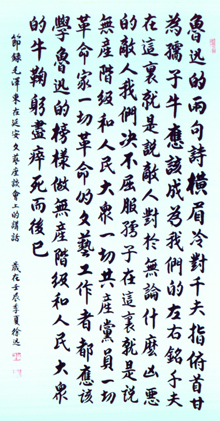 魯迅的兩句詩橫眉冷對千夫指俯首甘
為孺子牛應該成為我們的左右銘千夫
在這裏就是說敵人對於無論什麽凶惡
的敵人我們决不屈服孺子在這裏就是說
無產階級和人民大衆一切共產黨員一切
革命家一切革命的文藝工作者都應該
學魯迅的榜樣做無產階級和人民大衆
的牛鞠躬盡瘁死而後已
節録毛澤東在延安文藝座談會上的講話 歲在壬辰季夏徐迅